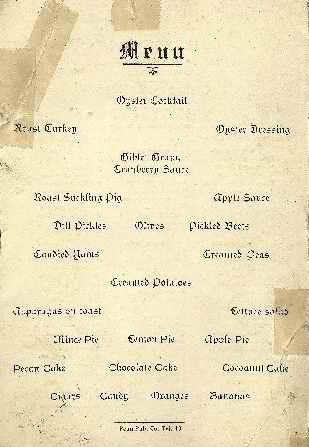 Menu
Oyster Cocktail
Roast Turkey Oyster Dressing
Giblet Gravy
Cranberry Sauce
Roast Suckling Pig Apple Sauce
Dill Pickles Olives Pickled Beets
Candied Yams Creamed Peas
Creamed Potatoes
Asparagus on toast Lettuce salad
Mince Pie Lemon Pie Apple Pie
Pecan Cake Chocolate Cake Cocoanut Cake
Cigars Candy Oranges Bananas